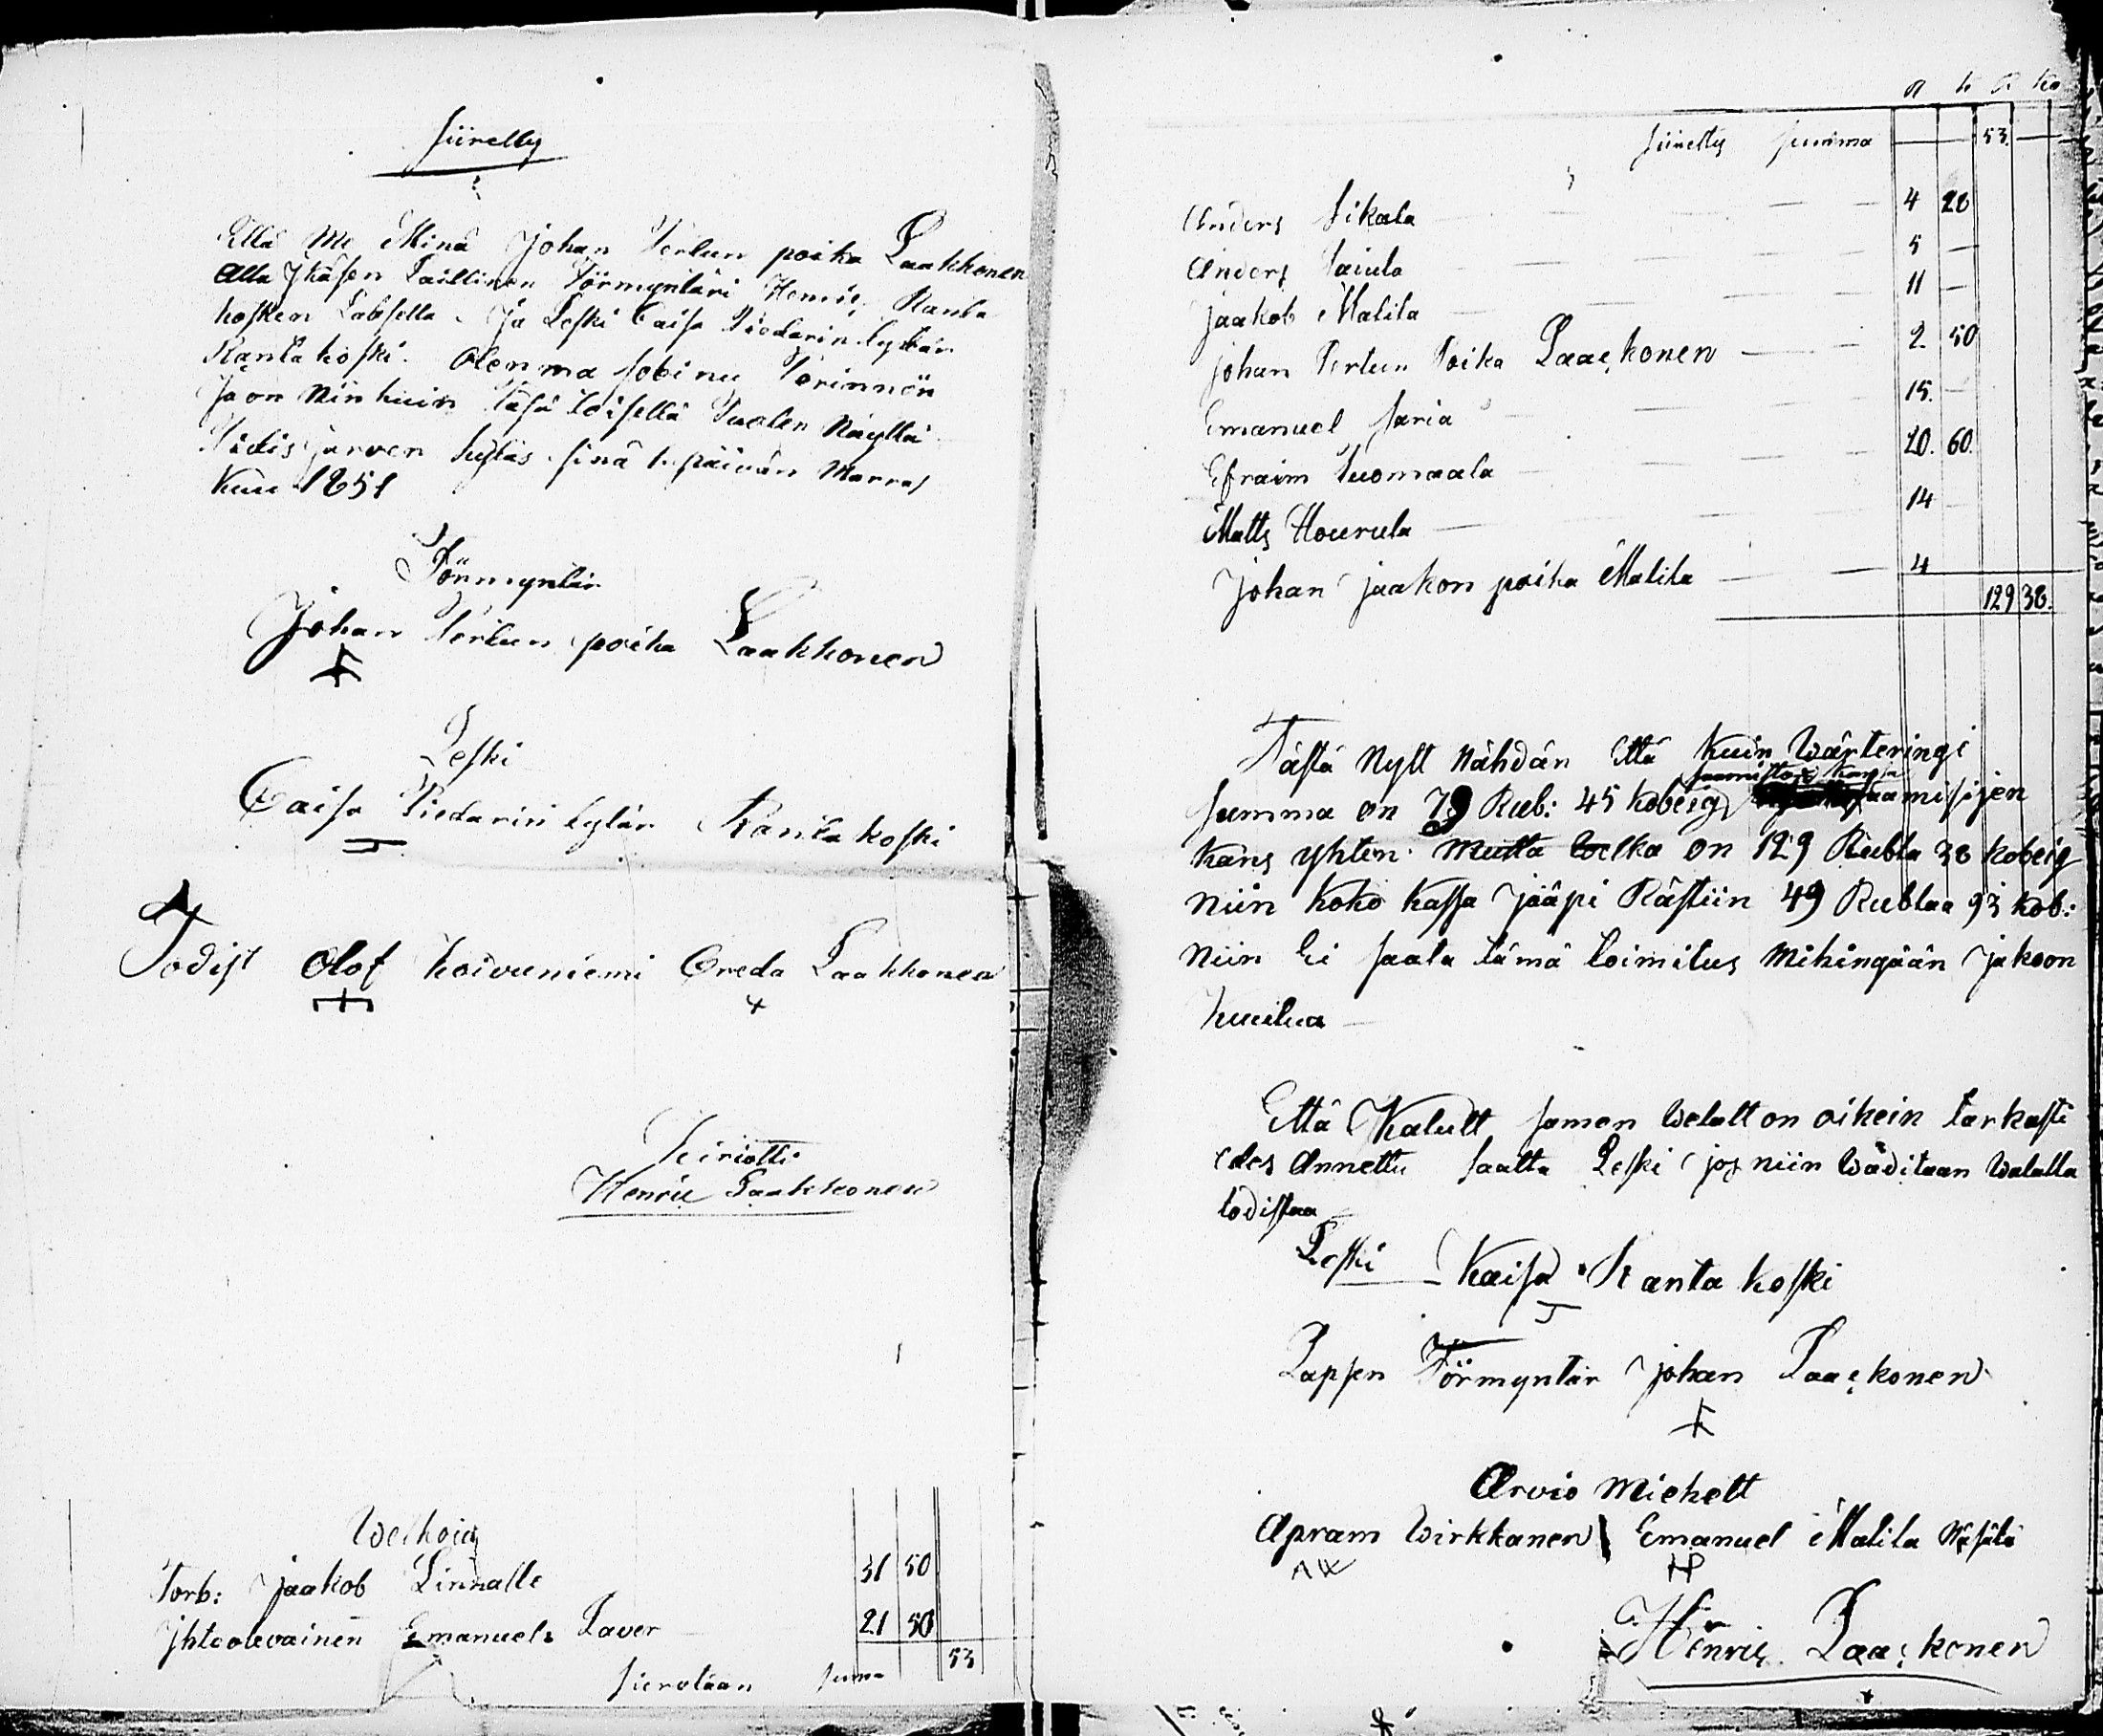 Siiretty
Että Me Minä Johan Pertun poika Laakkonen
Alla Ikäsen Laillinen Förmyntäri Henric Ranta
kosken Labsella. Ja Leski Caisa Piedarin tytär
Ranta koski. Olenma sobinu Perinnön
Ja on Niin kuin Täsä toisella Puolen Näyttä
järven kyläs sinä 1 päivän Marras
kuu 1851
Förmyntär
Johan Pertun poika Laakkonen
Leski
Caisa Piedarin tytär Ranta koski
Todist Olof Koivuniemi Greda Laakkonen
Kirioitti
Henric Laakkonen
Welkoia
Torb: Jaakob Linnalle 31 50
Yhteolevainen Emanuel Laver 21 50
Siirotaan Suma 53
R k R ko
Siiretty Summa 53 —
Anders Sikala 4 28
Anders 5 —
Jaakob Malila 11 —
Johan Pertun Poika Laackonen 2 50
Emanuel Saria 15. —
Efraim Tuomaala 20. 60.
Matts Hourula 14 —
Johan Jaakon poika Malila 4
129 38.
Tästä Nytt Nähdän Että Kuin Wärteringi
Summa on 79 Rub: 45 kobeig saamisijen
kans yhten. Mutta Welka on 129 Rubla 38 kobeig
Niin koko kassa jääpi Rästiin 49 Rublaa 93 kob:
Niin Ei saata tämä toimitus Mihingään jakoon
kuulua —
Että Kalutt samon Welatt on oikein tarkasti
edes Annettu saatta Leski jos niin Wäditaan Walalla
todistaa
Leski Kaisa Ranta koski
Lapsen Förmyntär Johan Laackonen
Arvio Miehett
Apram Wirkkanen Emanuel Malila
AW
Henric Laackonen